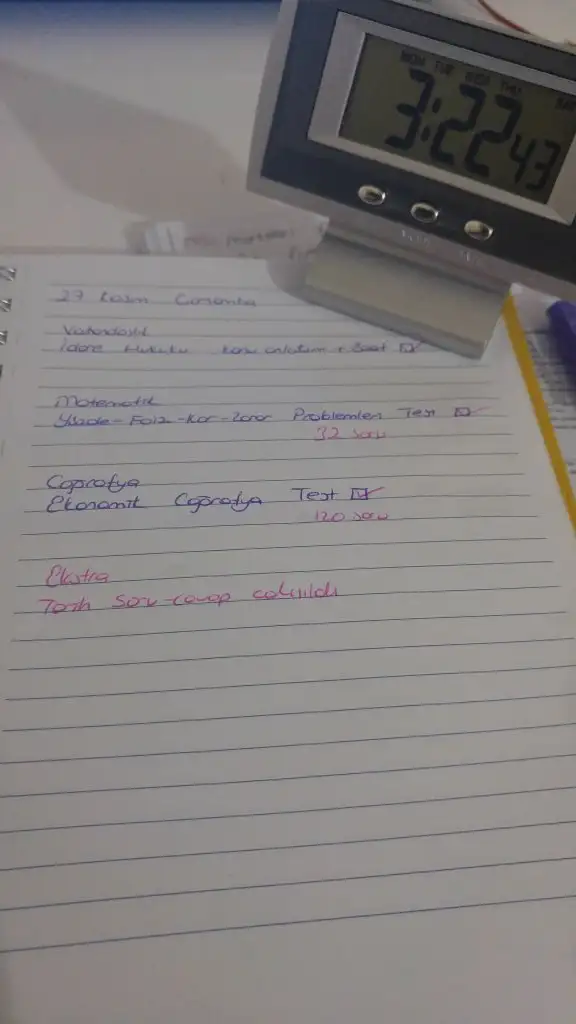 MON TUE WED THU SAT
3:22 43
27 Kasım Çarşamba
Vatandaşlık
İdare Hukuku konu anlatım + 3 saat
Matematik
Yüzde-Faiz-Kar-Zarar Problemleri Test
32 soru
Coğrafya
Ekonomik Coğrafya Test
120 soru
Ekstra
Tarih soru-cevap çalışıldı